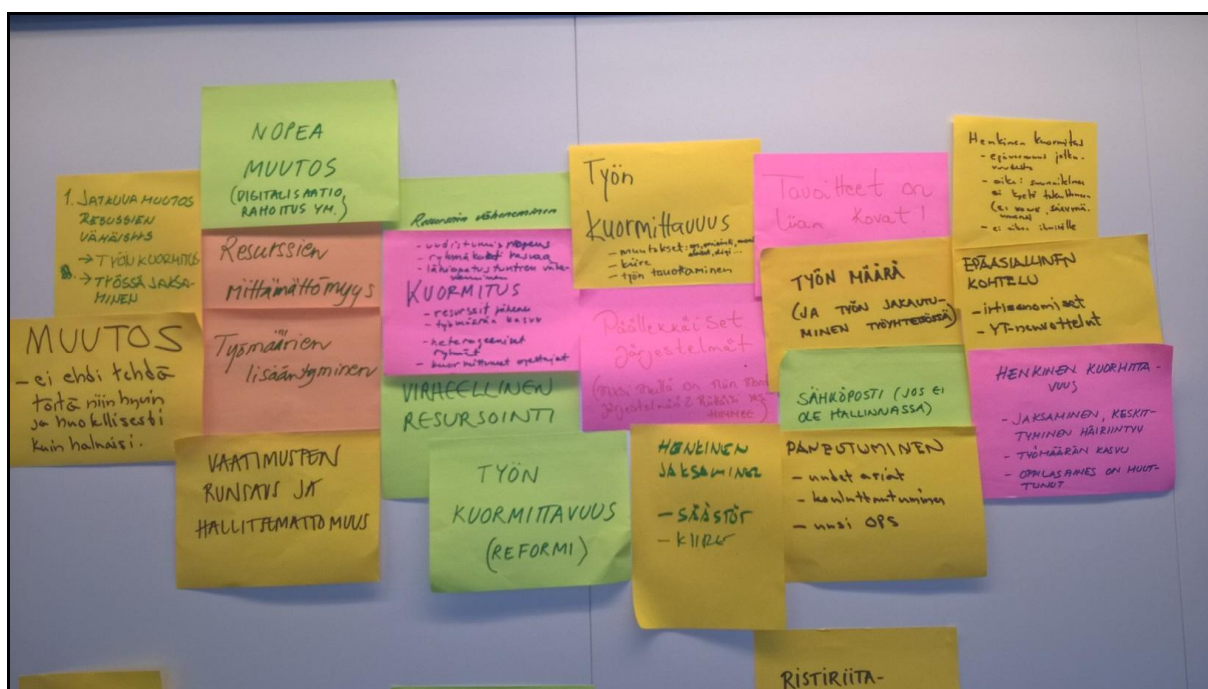 1. JATKUVA MUUTOS
RESUSSIEN
VÄHÄISYYS
→ TYÖN KUORMITUS
→ TYÖSSÄ JAKSA-
MINEN
MUUTOS
- ei ehdi tehdä
töitä niin hyvin
ja huolellisesti
kuin haluaisi.
NOPEA
MUUTOS
(DIGITALISAATIO,
RAHOITUS YM.)
Resurssien
riittämättömyys
Työmäärien
lisääntyminen
VAATIMUSTEN
RUNSAUS JA
HALLITSEMATTOMUUS
Resurssin väheneminen
- uudistumis nopeus
- ryhmäkoot kasvaa
- lähiopetus tuntien vähe-
neminen
KUORMITUS
- resurssit vähenee
- työmäärän kasvu
- heterogeeniset
ryhmät
- kuormittuneet opettajat
VIRHEELLINEN
RESURSOINTI
TYÖN
KUORMITTAVUUS
(REFORMI)
Työn
kuormittavuus
- muutokset:
- kiire
- työn tauottaminen
Tavoitteet on
liian kovat!
Päällekkäiset
järjestelmät
HENKINEN
JAKSAMINEN
- SÄÄSTÖT
- KIIRE
TYÖN MÄÄRÄ
(JA TYÖN JAKAUTU-
MINEN TYÖYHTEISÖSSÄ)
SÄHKÖPOSTI (JOS EI
OLE HALLINNASSA)
PANEUTUMINEN
- uudet asiat
- kouluttautuminen
- uusi OPS
Henkinen kuormitus
- epävarmuus jatku-
vuudesta
- ei aikaa ihmisille
EPÄASIALLINEN
KOHTELU
- irtisanomiset
- YT-neuvottelut
HENKINEN KUORMITTA-
VUUS
- JAKSAMINEN, KESKIT-
TYMINEN HÄIRIINTYY
- TYÖMÄÄRÄN KASVU
- OPPILASAINES ON MUUT-
TUNUT
RISTIRIITA-